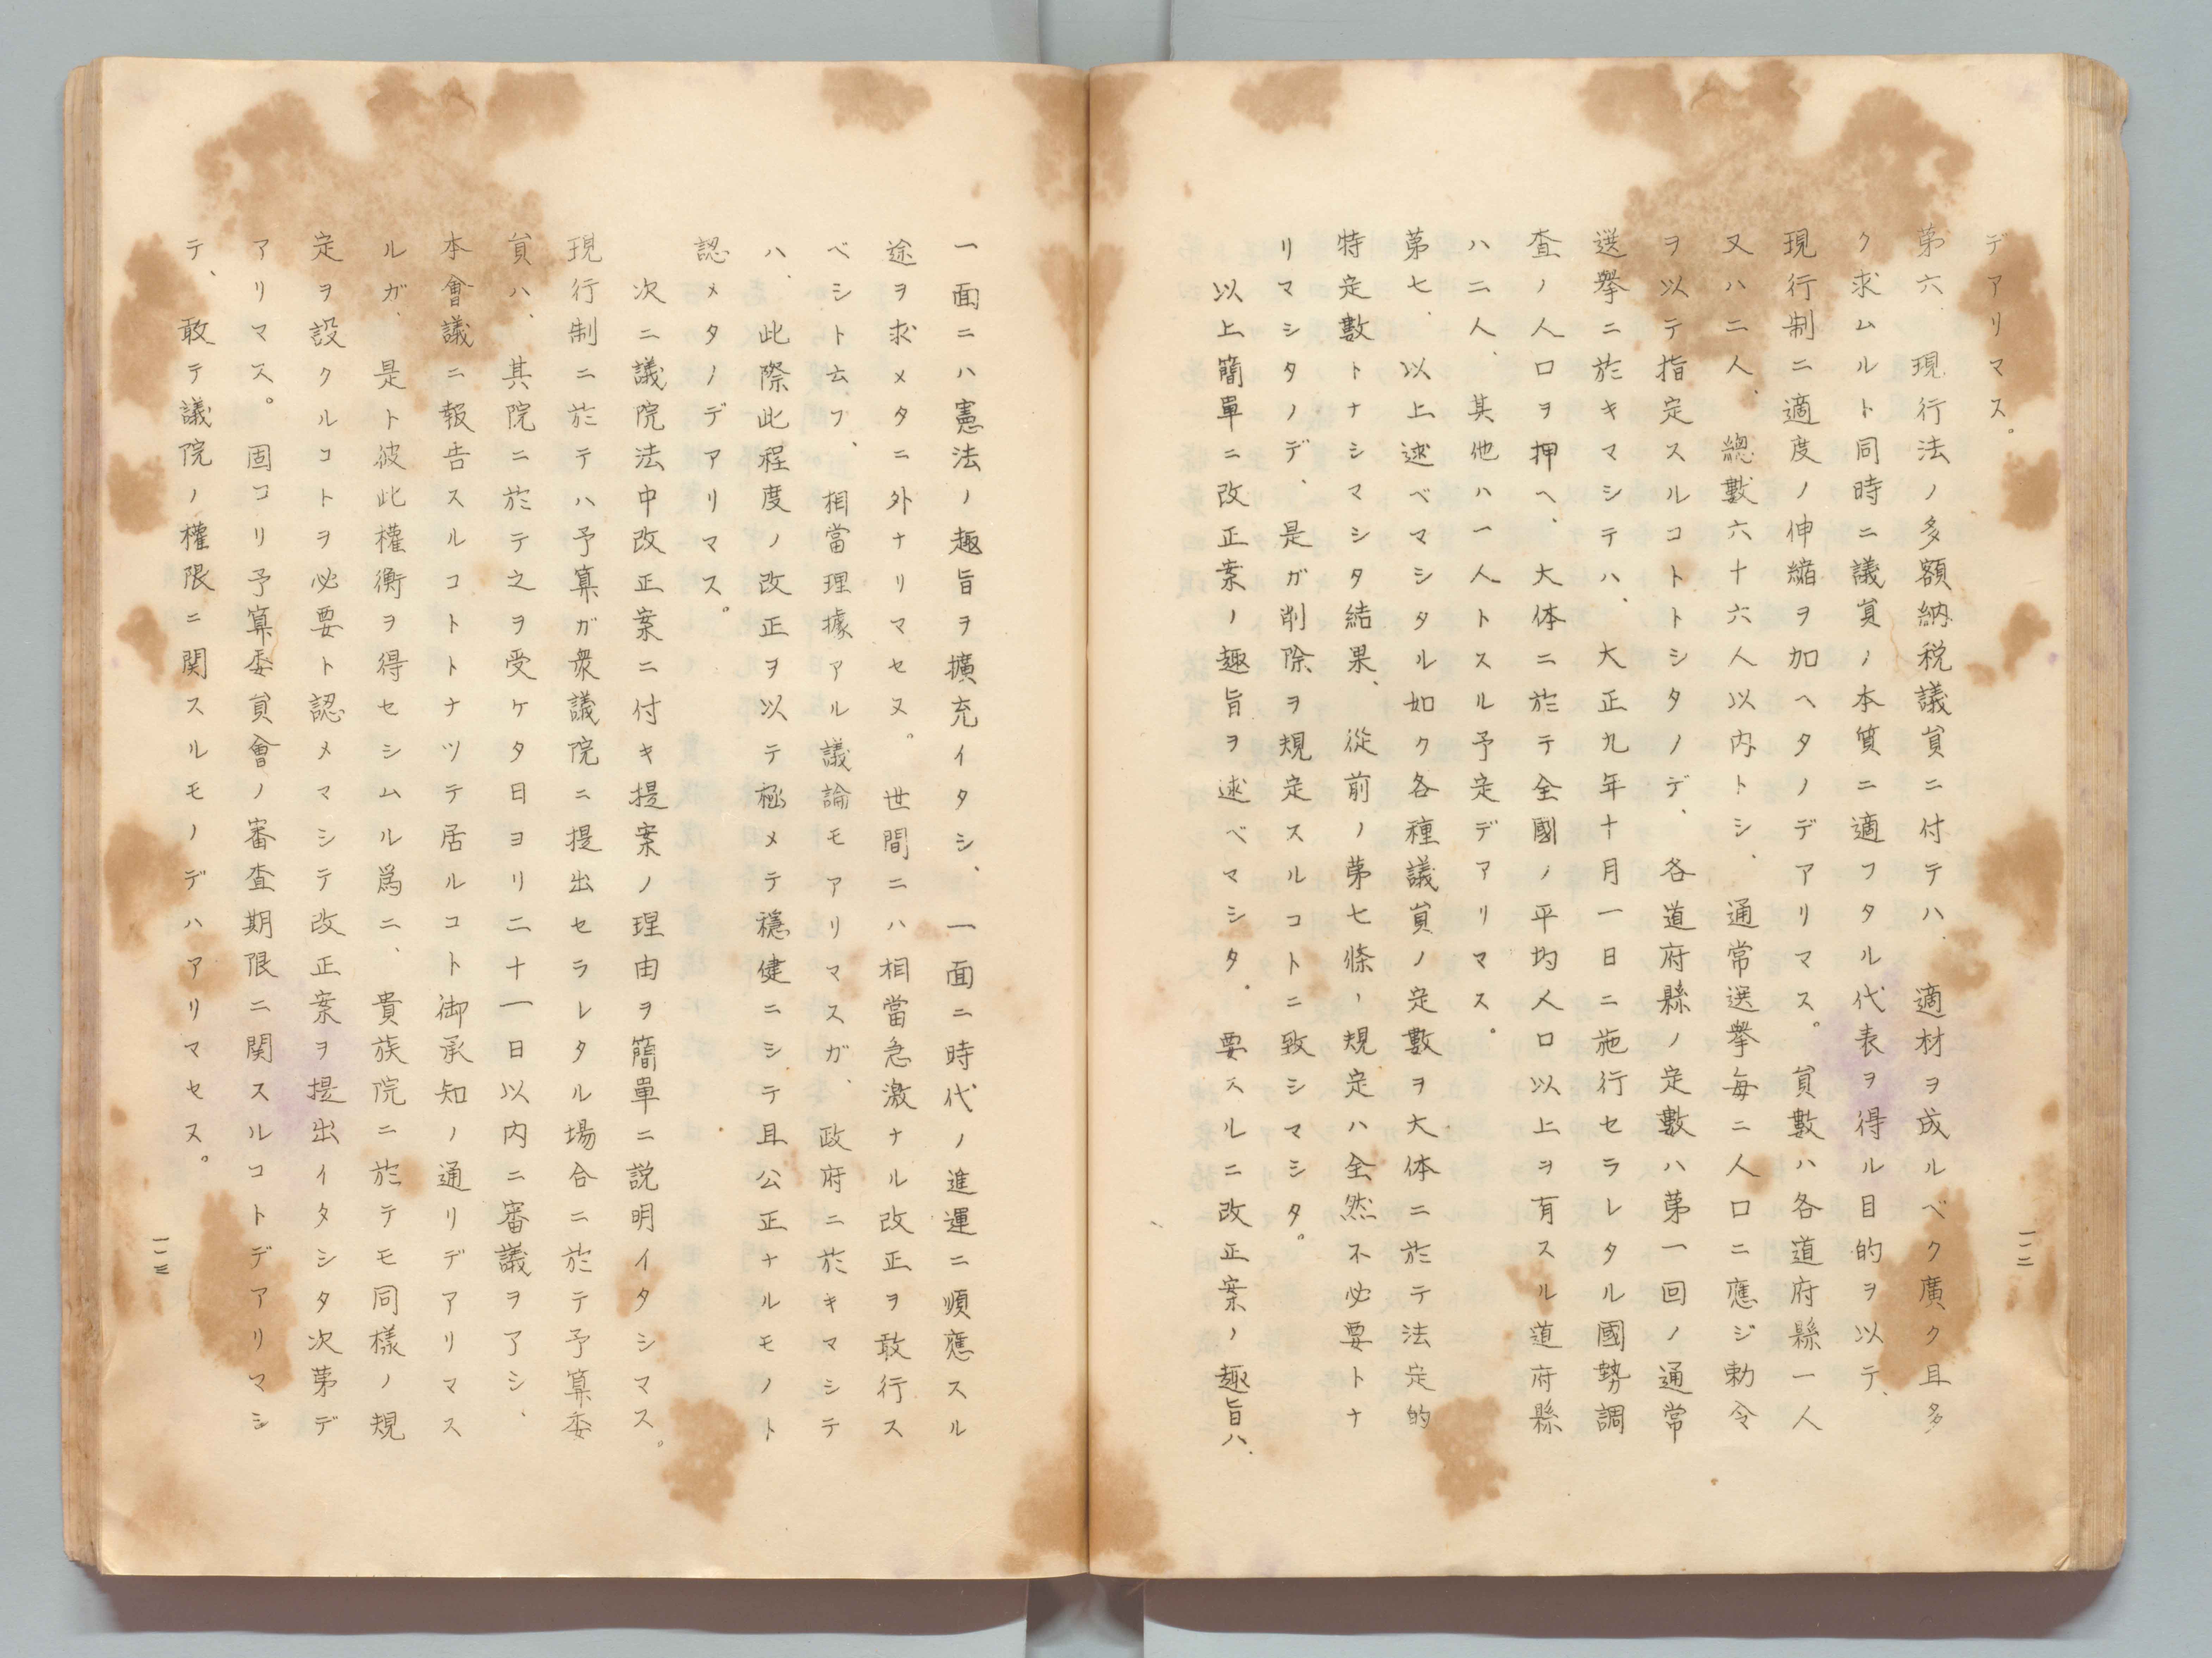 デアリマス。
第六、現行法ノ多額納税議員ニ付テハ、適材ヲ成ルベク廣ク且多
ク求ムルト同時ニ議員ノ本質ニ適フタル代表ヲ得ル目的ヲ以テ、
現行制ニ適度ノ伸縮ヲ加ヘタノデアリマス。員數ハ各道府縣一人
又ハ二人、總數六十六人以内トシ、通常選擧毎ニ人口ニ應ジ勅令
ヲ以テ指定スルコトトシタノデ、各道府縣ノ定數ハ第一回ノ通常
選擧ニ於キマシテハ、大正九年十月一日ニ施行セラレタル國勢調
査ノ人口ヲ押ヘ、大体ニ於テ全國ノ平均人口以上ヲ有スル道府縣
ハ二人、其他ハ一人トスル予定デアリマス。
第七、以上述ベマシタル如ク各種議員ノ定數ヲ大体ニ於テ法定的
特定數トナシマシタ結果、從前ノ第七條ノ規定ハ全然不必要トナ
リマシタノデ、是ガ削除ヲ規定スルコトニ致シマシタ。
以上簡單ニ改正案ノ趣旨ヲ述ベマシタ。要スルニ改正案ノ趣旨ハ、
一二
一面ニハ憲法ノ趣旨ヲ擴充イタシ、一面ニ時代ノ進運ニ順應スル
途ヲ求メタニ外ナリマセヌ。世間ニハ相當急激ナル改正ヲ敢行ス
ベシト云フ、相當理據アル議論モアリマスガ、政府ニ於キマシテ
ハ、此際此程度ノ改正ヲ以テ極メテ穩健ニシテ且公正ナルモノト
認メタノデアリマス。
次ニ議院法中改正案ニ付キ提案ノ理由ヲ簡單ニ説明イタシマス。
現行制ニ於テハ予算ガ衆議院ニ提出セラレタル場合ニ於テ予算委
員ハ、其院ニ於テ之ヲ受ケタ日ヨリ二十一日以内ニ審議ヲ了シ、
本會議ニ報告スルコトトナツテ居ルコト御承知ノ通リデアリマス
ルガ、是ト彼此權衡ヲ得セシムル爲ニ、貴族院ニ於テモ同樣ノ規
定ヲ設クルコトヲ必要ト認メマシテ改正案ヲ提出イタシタ次第デ
アリマス。固ヨリ予算委員會ノ審査期限ニ関スルコトデアリマシ
テ、敢テ議院ノ權限ニ関スルモノデハアリマセヌ。
一三